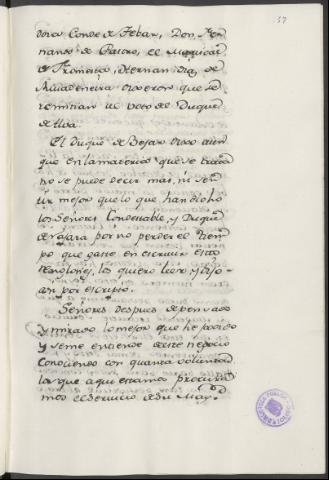 57
dores Conde de Febar, Don Her-
nando de Castro, el Marques
de Fromista, Hernan Dia de
Rivadeneira dixeron que se
remitian al voto del Duque
de Alva.
El Duque de Bejar dixo aun
que en la materia que se trata
no se puede decir mas, ni sen-
tir mejor que lo que han dicho
los Señores Condestable, y Duque
de Najara por no perder el tiem-
po que gaste en escrivir estos
renglones, los quiero leer, y dijo-
an por escripto.
Señores despues de pensado
y mirado lo mejor que he podido
y se me entiende de este negocio
conociendo con quanta voluntad
los que aqui estamos procura-
mos el servicio de Su Mag.d